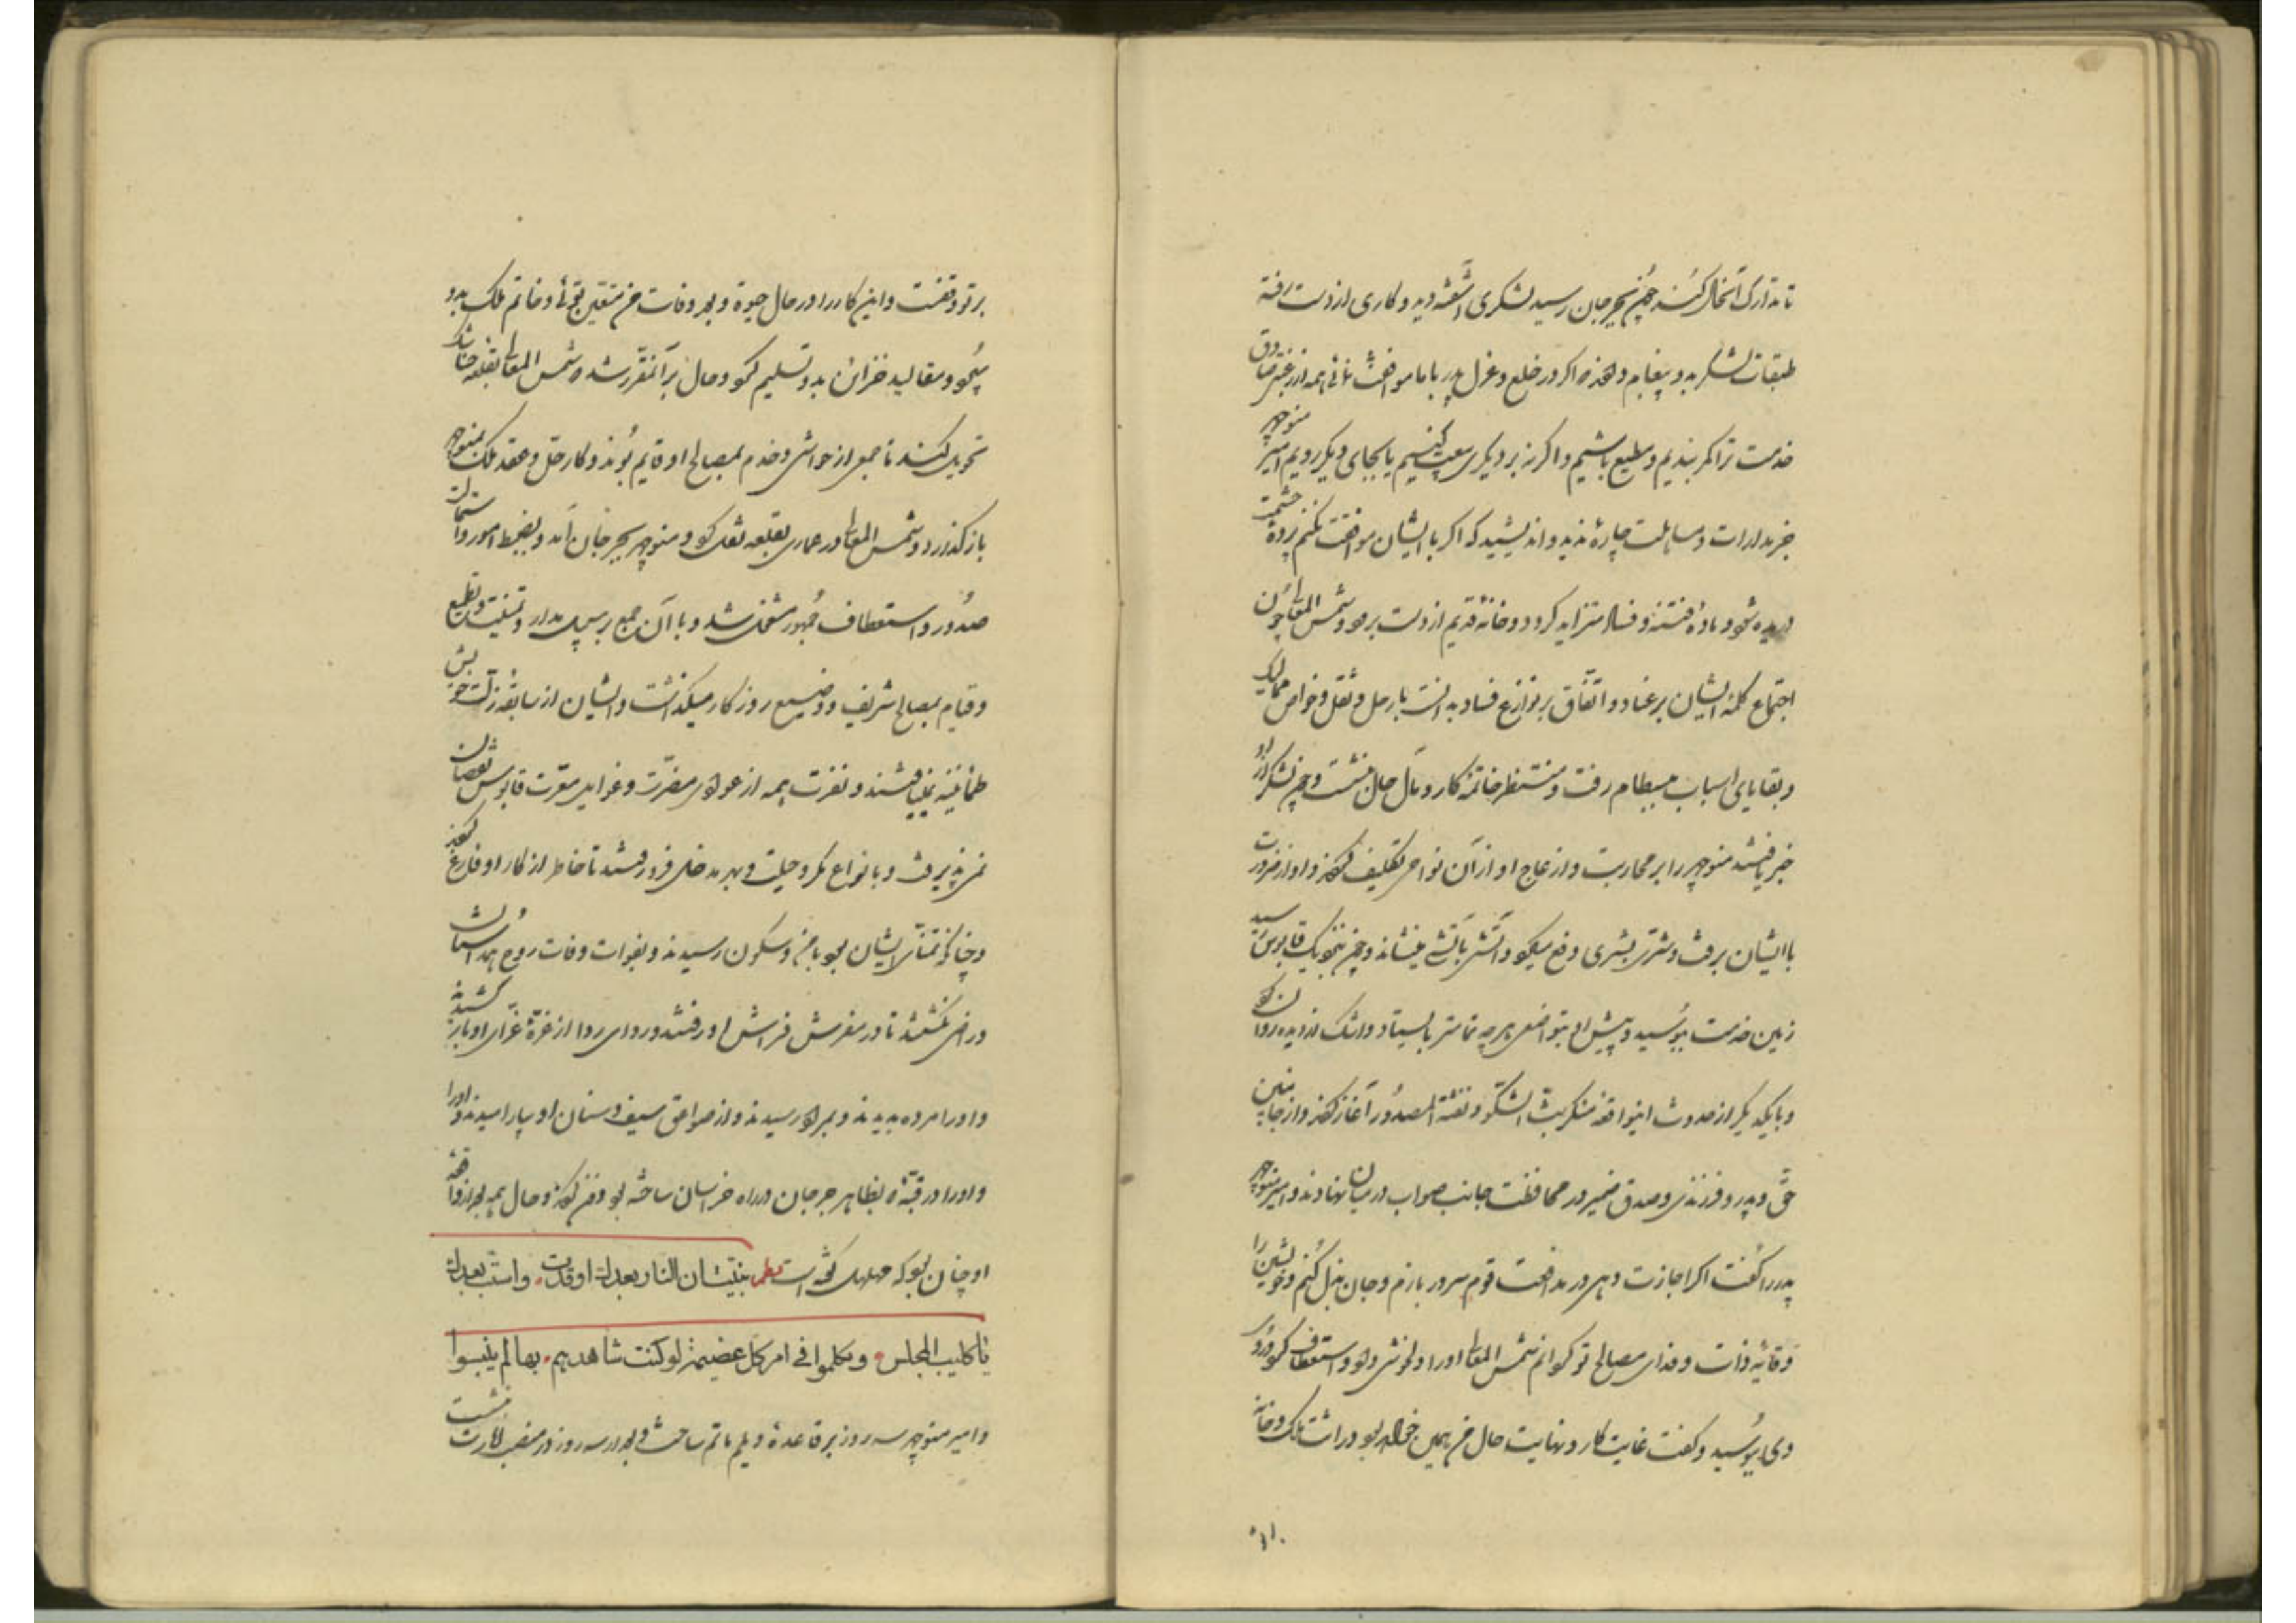 تا بتدارک آنحال کند چون بجرجان رسید لشکری آشفته دید و کاری از دست رفته
طبقات لشکر بدو پیغام دادند که اگر در خلع و عزل پدر با ما موافقت نمائی همه از رغبتی صادق
خدمت ترا کمر بندیم و مطیع باشیم و اگر نه بر دیگری بیعت کنیم یا بجای دیگر رویم امیر منوچهر
جز مدارات و مساهلت چارهٔ ندید و اندیشید که اگر با ایشان موافقت نکنم پردهٔ حشمت
دریده شود و مادهٔ فتنه و فساد متزاید گردد و خانهٔ قدیم از دست برود و شمس المعالی چون
اجتماع کلمهٔ ایشان بر عناد و اتفاق بر نوازع فساد بدانست با رحل و ثقل و خواص ممالیک
و بقایای اسباب ببسطام رفت و منتظر خاتمهٔ کار و مآل حال بنشست و چون لشکر از او
خبر یافتند منوچهر را بر محاربت و ازعاج او از آن نواحی تکلیف کردند و او از ضرورت
با ایشان برفت و شری بشری دفع میکرد و آتشی بآتشی مینشاند و چون بنزدیک قابوس رسید
زمین خدمت ببوسید و پیش او بتواضعی هر چه تمامتر بایستاد و اشک از دیده روان کرد
و با یکدیگر از حدوث اینواقعهٔ منکر بث الشکوی و نفثة المصدور آغاز کردند و از جانبین
حق پدر و فرزندی و صدق ضمیر در محافظت جانب صواب در میان نهادند و امیر منوچهر
پدر را گفت اگر اجازت دهی در مدافعت قوم سر در بازم و جان بذل کنم و خویشتن را
وقایهٔ ذات و فدای مصالح تو گردانم شمس المعالی او را دلخوشی داد و استعطاف کرد و روی
وی ببوسید و گفت غایت کار و نهایت حال من همین خواهد بود وراثت ملک و خانه
۱۱۰
بر تو وقفست و این کار را در حال حیوة و بعد وفات من متعین توئی و خاتم ملک بدو
سپرد و مقالید خزائن بدو تسلیم کرد و حال بر آن مقرر شد که شمس المعالی بقلعه جناشک
تحویل کند تا جمعی از حواشی و خدم بمصالح او قایم بوند و کار حل و عقد ملک بمنوچهر
باز گذارد و شمس المعالی در عماری بقلعه نقل کرد و منوچهر بجرجان آمد و بضبط امور و استمالت
صدور و استعطاف جمهور مشغول شد و با آن جمع بر سبیل مدارات و تمشیت و تطمیع
و قیام بمصالح شریف و وضیع روزگار میگذاشت و ایشان از سابقهٔ زلت خویش
طمأنینه نمییافتند و نفرت همه از عوادی مضرت و غوایل معرت قابوس نقصان
نمی پذیرفت و بانواع مکر و حیلت و بهر مدخلی فرو رفتند تا خاطر از کار او فارغ کردند
و چنانکه تمنای ایشان بود بامن و سکون رسیدند و بفوات وفات روح همداستان
و راضی نگشتند تا در مفرش فراش او رفتند و ردای ردا از غرهٔ غرای او باز کشیدند
و او را مرده بدیدند و بمراد رسیدند و از صواعق سیف و سنان او بیارامیدند و او را
و او را در قبهٔ که بظاهر جرجان در راه خراسان ساخته بود دفن کردند و حال همه بعد از واقعه
او چنان بود که مهلهل گفته است نظم نبئت ان النار بعدك اوقدت • واستب بعدك
یا کلیب المجلس • و تکلموا فی امر کل عضیمة لو کنت شاهدهم • بها لم ینبسوا
و امیر منوچهر سه روز بر قاعدهٔ دیلم ماتم ساخت و بعد از سه روز در منصب امارت بنشست